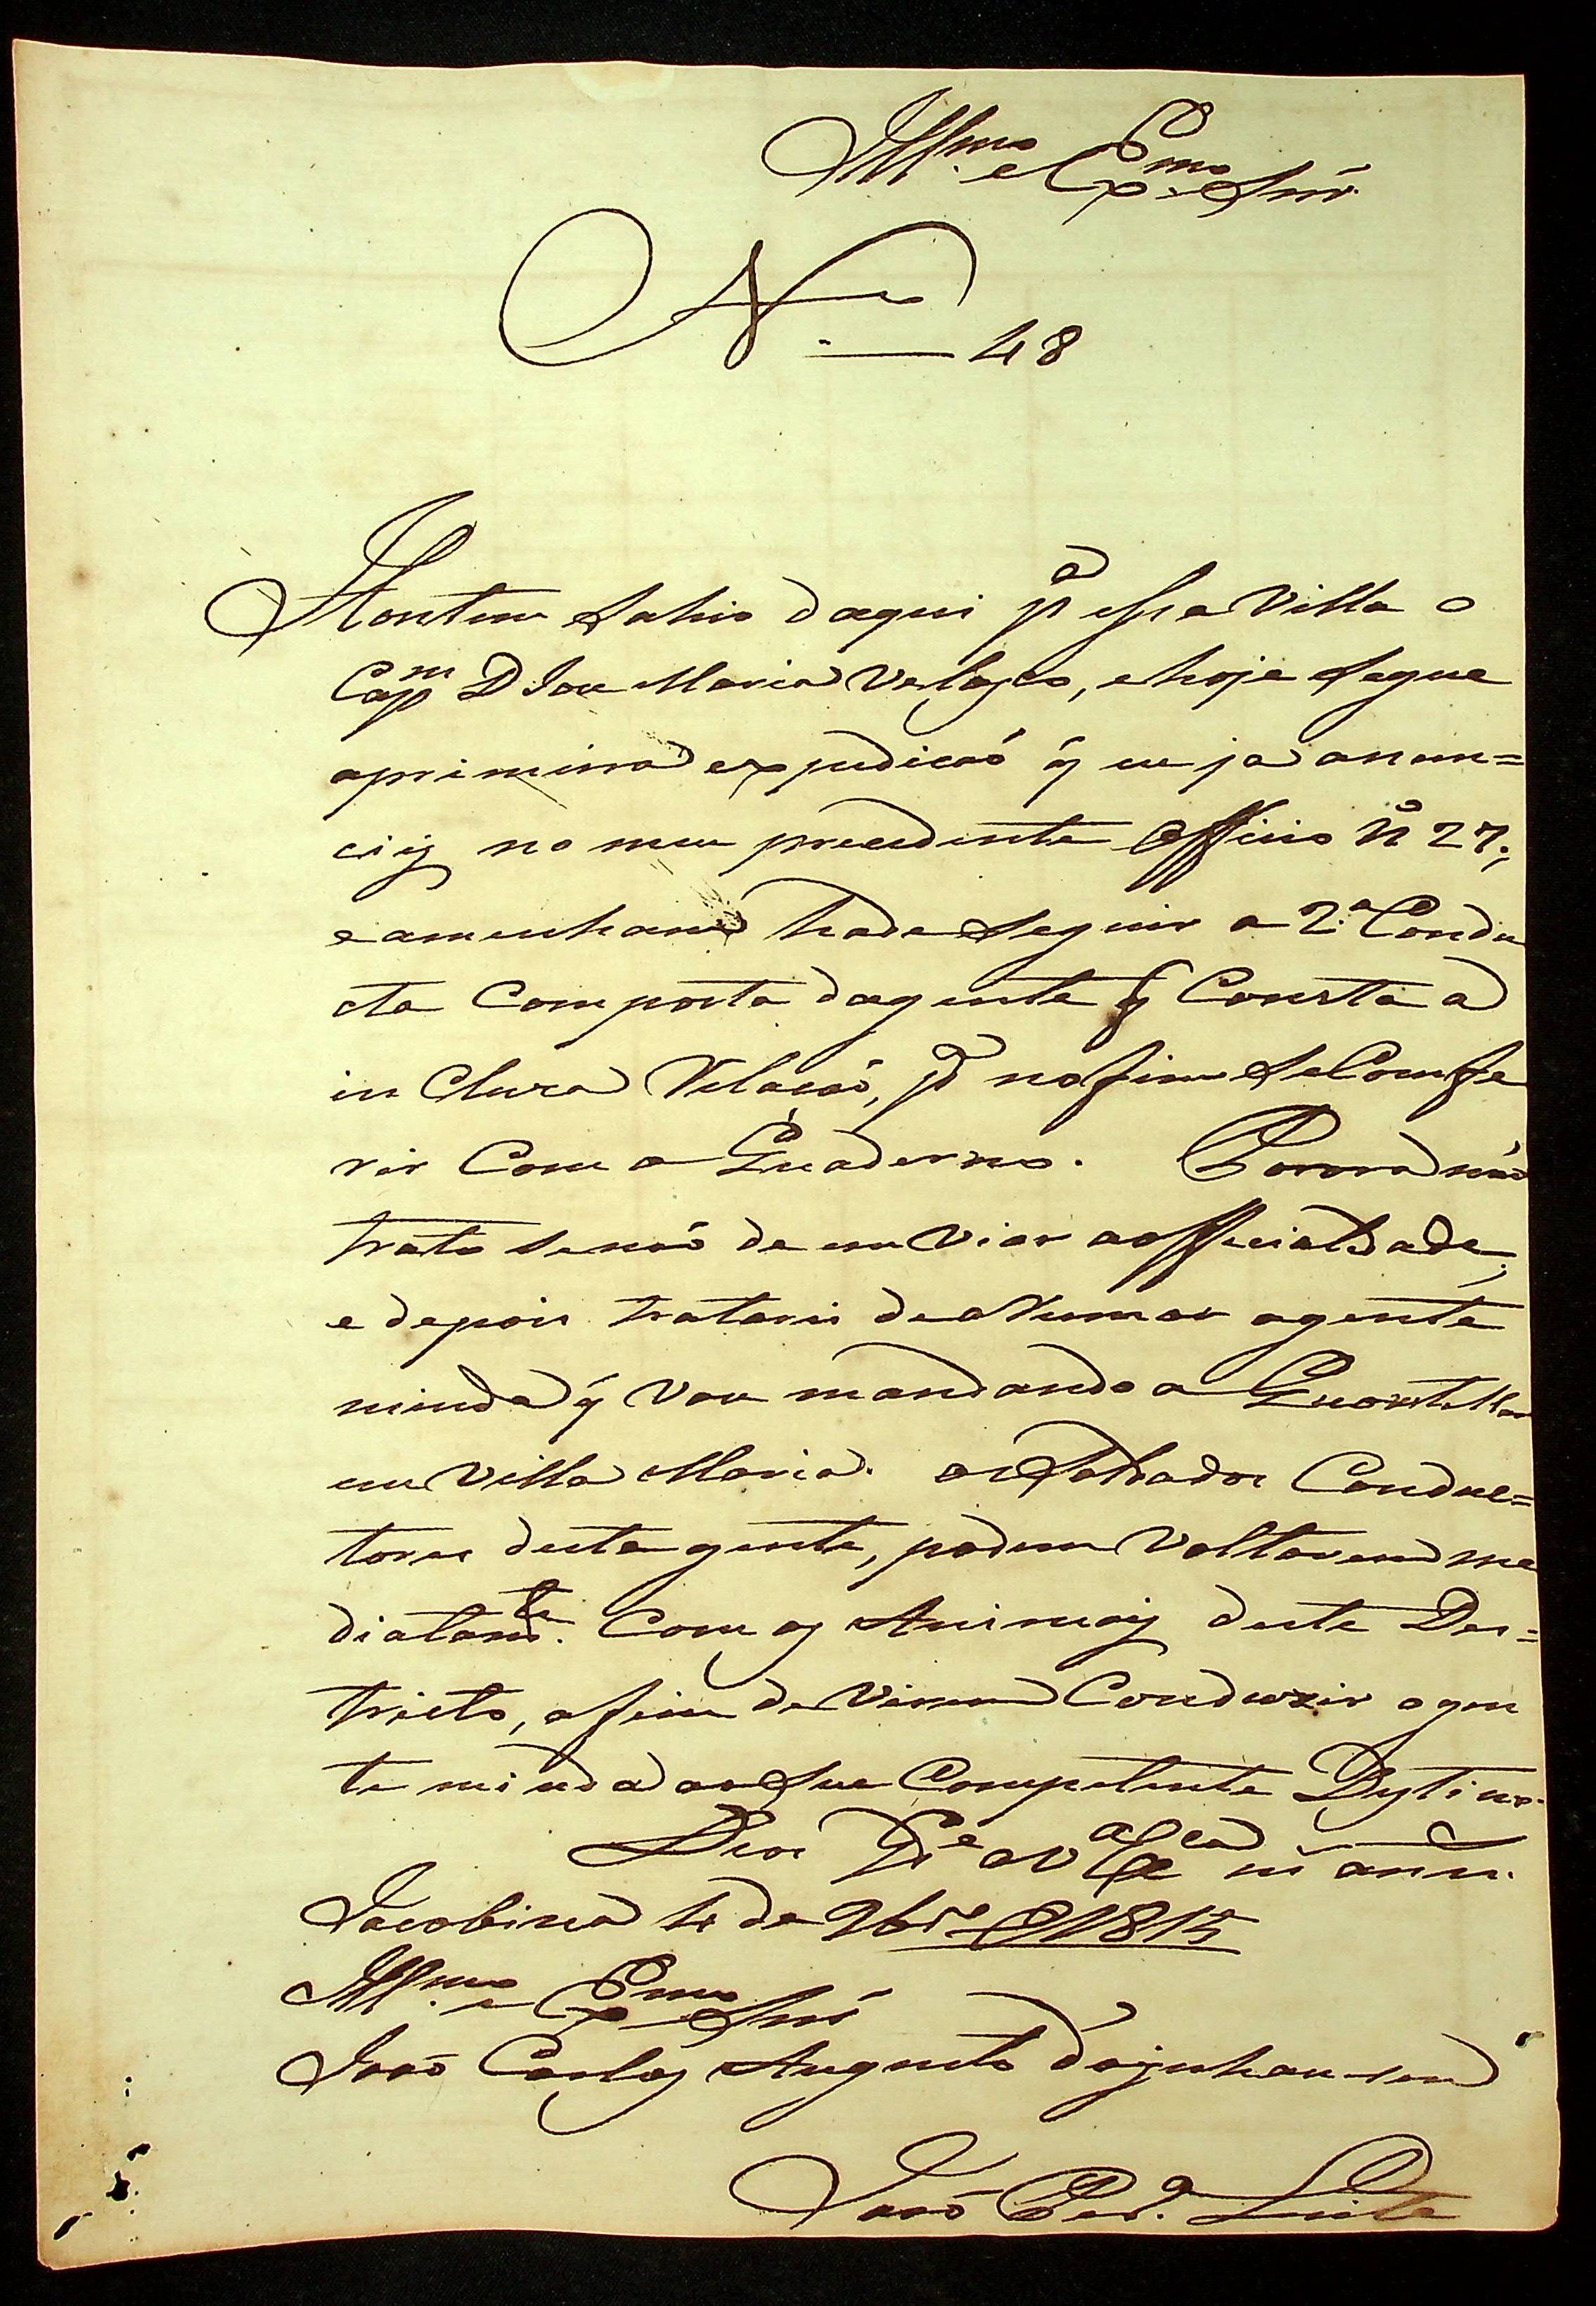 Ill.mo e Ex.mo Snr.
N.o — 48
Hontem Sahio daqui p.a essa Villa o
Cap.m D Joze Maria Velasco, e hoje Segue
aprimeira expediçaó q̃ eu ja anun=
cieiy no meu precedente Officio N.o 27.,
e amenhaned hade Seguir a 2.a Condu
cta Comporta dagente q̃ Consta a
in Cluza Relaçaó, p.a nofim deComfe
rir Com o Quaderno. Porora não
trato senaó de enViar aofficialidade;
e depois tratarei deaRumar agente
miuda q̃ Vou mandando a Quartellar
em Villa Maria. os Soldados Conduc=
tores desta gente, podem Voltar em me
diatam.te Com os Animaiz deste Des=
tricto, afim deVirem Conduzir agen
te miuda ao Seu Competente Destino.
Deos G.e a V.a Ex.cia m.s ann.s
Jacobina 4 de 9br.e D 1815
Ill.mo e Ex.mo Snr
Joaó Carlos Augusto d'Oyenhausen
Joaó Per.a Leite